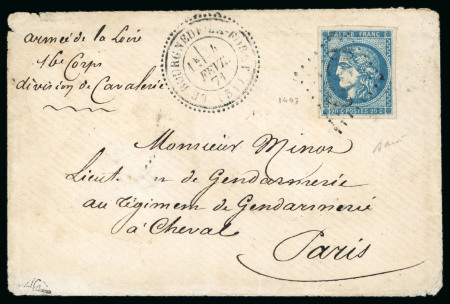 armée de la Loire
16e Corps
division de Cavalerie
LE BOURGNEUF-LA-
4
FEVR.
71
REP. FRANC
20 C POSTES 20 C
1493
Monsieur Minos
Lieut n de Gendarmerie
au Régiment de Gendarmerie
à Cheval
Paris